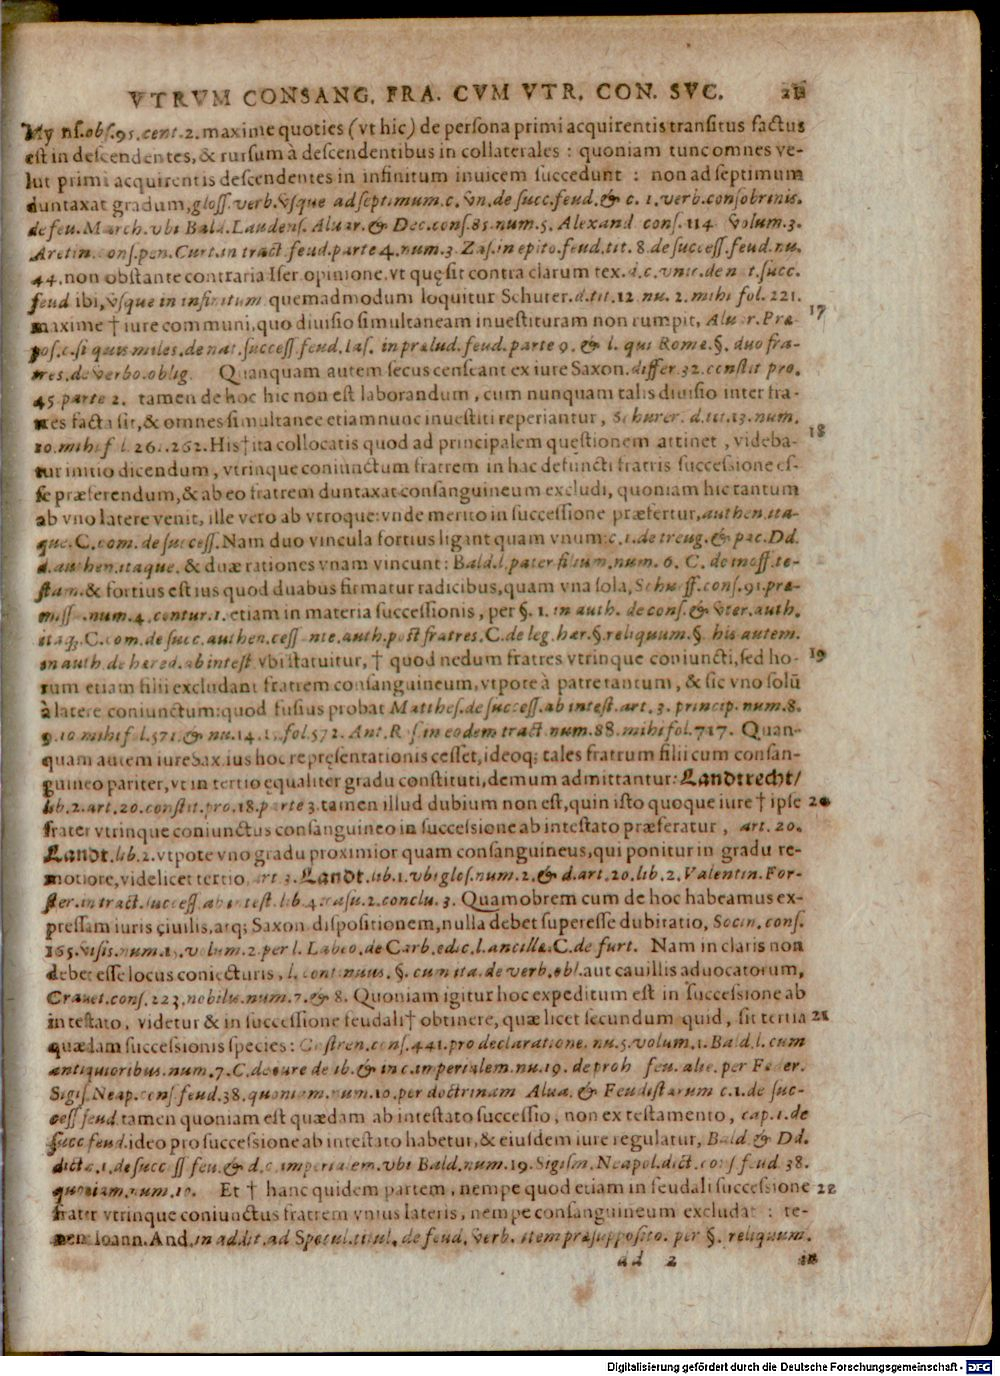 VTRVM CONSANG. FRA. CVM VTR. CON. SVC.
My nſ.obſ.95.cent.2. maxime quoties (vt hic) de perſona primi acquirentis tranſitus factus
eſt in deſcendentes, & rurſum à deſcendentibus in collaterales : quoniam tunc omnes ve-
lut primi acquirentis deſcendentes in infinitum inuicem ſuccedunt : non ad ſeptimum
duntaxat gradum, gloſſ. verb. vſque ad ſeptimum. c. vn. de ſucc. feud. & c. 1. verb. conſobrinis.
de feu. March. vbi Bald. Laudenſ. Aluar. & Dec. conſ. 85. num. 5. Alexand conſ. 114 volum. 3.
Aretin. conſ. pen. Curt. in tract feud. parte 4. num. 3 Zaſ. in epito. feud. tit. 8. de ſucceſſ. feud. nu.
44. non obſtante contraria Iſer. opinione. vt quę ſit contra clarum tex. d. c. vnic. de nat. ſucc.
feud ibi, vſque in infinitum quemadmodum loquitur Schurer. d. tit. 12 nu. 2. mihi fol. 221.
maxime † iure communi, quo diuiſio ſimultaneam inueſtituram non rumpit, Aluar. Præ- 17
poſ. c. ſi quis miles. de nat. ſucceſſ. feud. Iaſ. in prælud. feud. parte 9. & l. qui Romæ. §. duo fra-
tres. de verbo. oblig. Quanquam autem ſecus cenſeant ex iure Saxon. differ. 32. conſtit pro.
45 parte 2. tamen de hoc hic non eſt laborandum, cum nunquam talis diuiſio inter fra-
tres facta ſit, & omnes ſimultanee etiamnunc inueſtiti reperiantur, Schurer. d. tit. 13. num.
10. mihi fol. 261. 262. His † ita collocatis quod ad principalem quęſtionem attinet, videba- 18
tur initio dicendum, vtrinque coniunctum fratrem in hac defuncti fratris ſucceſſione eſ-
ſe præferendum, & ab eo fratrem duntaxat conſanguineum excludi, quoniam hic tantum
ab vno latere venit, ille vero ab vtroque: vnde merito in ſucceſſione præfertur, authen. ita-
que. C. com. de ſucceſſ. Nam duo vincula fortius ligant quam vnum: c. 1. de treug. & pac. Dd.
d. authen. itaque. & duæ rationes vnam vincunt: Bald. l. pater filium. num. 6. C. de inoff. te-
ſtam. & fortius eſt ius quod duabus firmatur radicibus, quam vna ſola, Schurff. conſ. 91. præ-
miſſ. num. 4. centur. 1. etiam in materia ſucceſſionis, per §. 1. in auth. de conſ. & vter. auth.
itaq;. C. com. de ſucc. authen. ceſſante. auth. poſt fratres. C. de leg. hær. §. reliquum. §. his autem.
in auth. de hæred. ab inteſt. vbi ſtatuitur, † quod nedum fratres vtrinque coniuncti, ſed ho- 19
rum etiam filii excludant fratrem conſanguineum, vtpote à patre tantum, & ſic vno ſolū
à latere coniunctum: quod fuſius probat Mattheſ. de ſucceſſ. ab inteſt. art. 3. princip. num. 8.
9. 10 mihi fol. 571. & nu. 14. fol 572. Ant. Roſ in eodem tract. num. 88. mihi fol. 717. Quan-
quam autem iure Sax. ius hoc repręſentationis ceſſet, ideoq; tales fratrum filii cum conſan-
guineo pariter, vt in tertio ęqualiter gradu conſtituti, demum admittantur: Landtrecht/
lib. 2. art. 20. conſtit. pro. 18. parte 3. tamen illud dubium non eſt, quin iſto quoque iure † ipſe 20
frater vtrinque coniunctus conſanguineo in ſucceſſione ab inteſtato præferatur, art. 20.
Landt. lib. 2. vtpote vno gradu proximior quam conſanguineus, qui ponitur in gradu re-
motiore, videlicet tertio art 3. Landt. lib. 1. vbi gloſ. num. 2. & d. art. 20. lib. 2. Valentin. For-
ſter. in tract. ſucceſſ. ab inteſt. lib. 4 caſu. 2. conclu. 3. Quamobrem cum de hoc habeamus ex-
preſſam iuris ciuilis, atq; Saxon. diſpoſitionem, nulla debet ſupereſſe dubitatio, Socin. conſ.
165. viſis. num. 1. volum. 2. per l. Labeo. de Carb. edic. l. ancillæ. C. de furt. Nam in claris non
debet eſſe locus coniecturis, l. continuus. §. cum ita. de verb. obl. aut cauillis aduocatorum,
Crauet. conſ. 223. nobilis. num. 7. & 8. Quoniam igitur hoc expeditum eſt in ſucceſſione ab
inteſtato, videtur & in ſucceſſione feudali † obtinere, quæ licet ſecundum quid, ſit tertia 21
quædam ſucceſſionis ſpecies: Caſtren. conſ. 441. pro declaratione. nu. 5. volum. 1. Bald. l. cum
antiquioribus. num. 7. C. de iure de lib. & in c. imperialem. nu. 19. de proh feu. alie. per Feder.
Sigiſ. Neap. conſ feud. 38. quoniam. num. 10. per doctrinam Alua. & Feudiſtarum c. 1. de ſuc-
ceſſ feud. tamen quoniam eſt quædam ab inteſtato ſucceſſio, non ex teſtamento, cap. 1. de
ſucc feud. ideo pro ſucceſſione ab inteſtato habetur, & eiuſdem iure regulatur, Bald. & Dd.
dict. c. 1. de ſucceſſ feu. & d. c. imperialem. vbi Bald. num. 19. Sigiſm. Neapol. dict. conſ feud 38.
quoniam. num. 10. Et † hanc quidem partem, nempe quod etiam in feudali ſucceſſione 22
frater vtrinque coniunctus fratrem vnius lateris, nempe conſanguineum excludat : te-
nent Ioann. And. in addit. ad Specul. titul. de feud. verb. item præſuppoſito. per §. reliquum.
dd 2 in
Digitalisierung gefördert durch die Deutsche Forschungsgemeinschaft - DFG